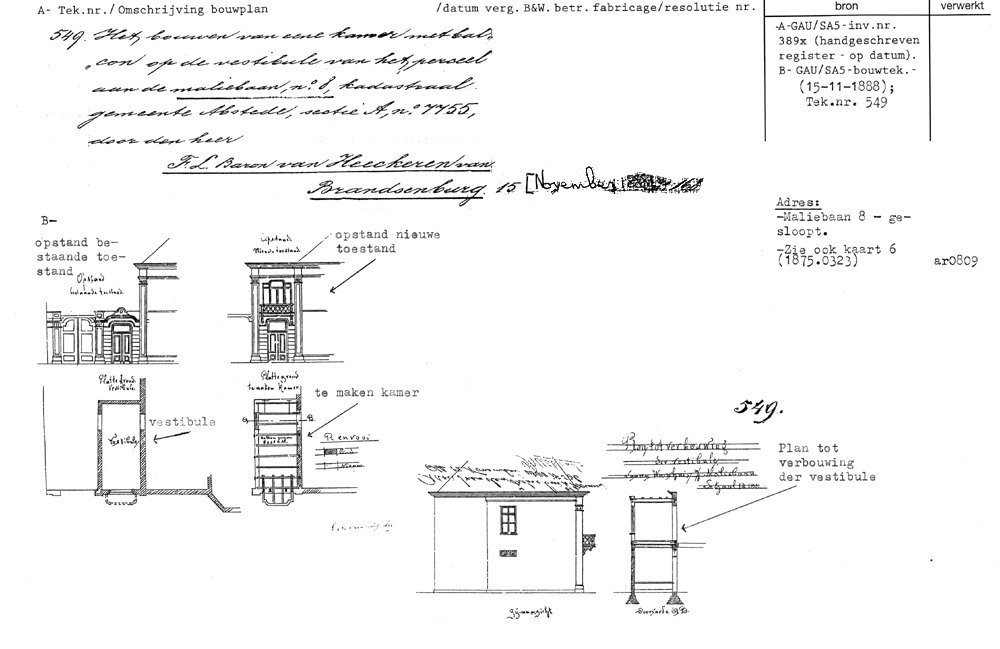 A- Tek.nr./Omschrijving bouwplan
/datum verg. B&W. betr. fabricage/resolutie nr.
bron
verwerkt
549. Het bouwen van eene kamer met bal-
con op de vestibule van het perceel
aan de maliebaan, no. 8, kadastraal
gemeente Abstede, sectie A, no. 7755,
door den heer
F. L. Baron van Heeckeren van
Brandsenburg 15 [November
-A-GAU/SA5-inv.nr.
389x (handgeschreven
register - op datum).
B- GAU/SA5-bouwtek.-
(15-11-1888);
Tek.nr. 549
Adres:
-Maliebaan 8 - ge-
sloopt.
-Zie ook kaart 6
(1875.0323)
ar0809
B-
opstand be-
staande toe-
stand
Opstand
bestaande toestand
Opstand
Nieuwe toestand
opstand nieuwe
toestand
Platte grond
Vestibule
Vestibule
vestibule
Plattegrond
te maken Kamer
B.
te maken kamer
Renvooi
Nieuw
549.
Plan tot verbouwing
der vestibule
Plan tot
verbouwing
der vestibule
Zijaanzicht
Doorsnede